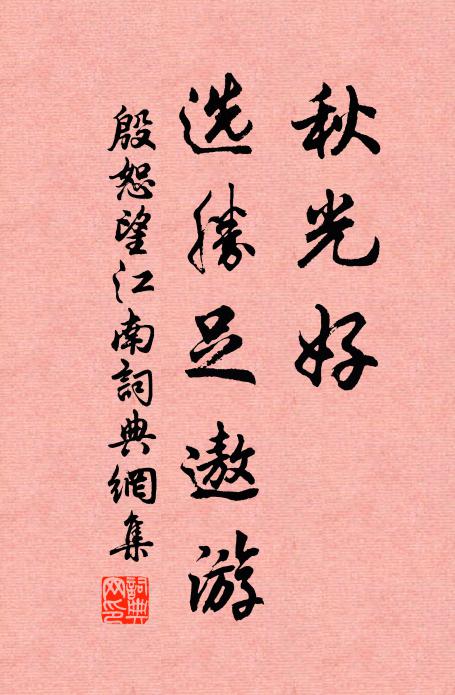 秋光好
选勝足遨游
殷恕望江南詞典網集
詞典网印